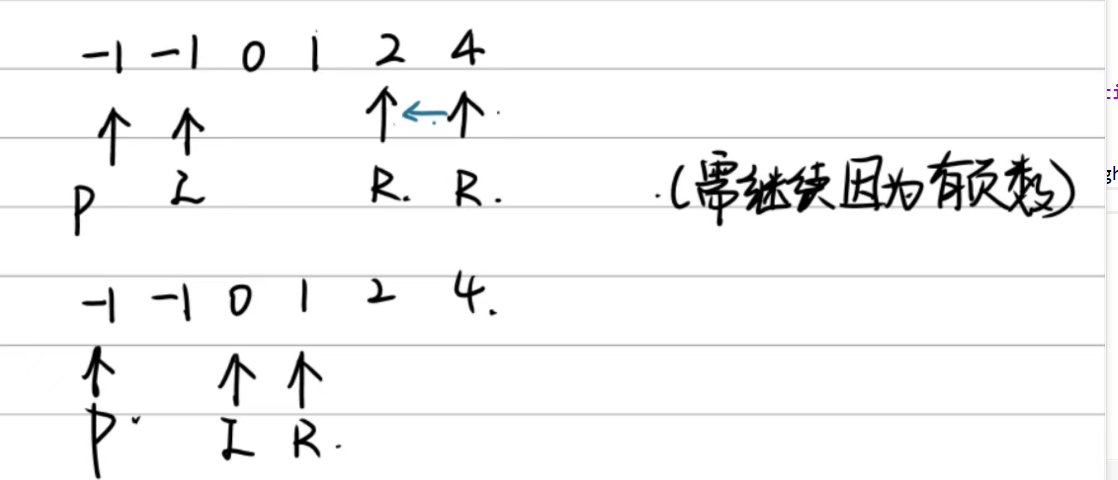 -1 -1 0 1 2 4
P L R. R. (需继续因为有负数)
-1 -1 0 1 2 4.
P L R.